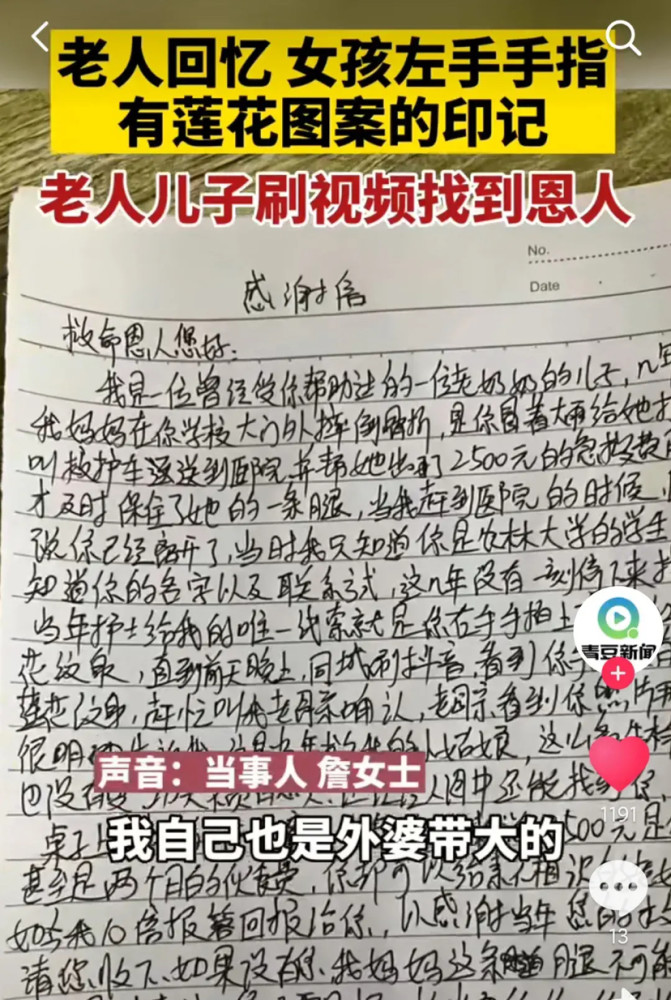 老人回忆 女孩左手手指
有莲花图案的印记
老人儿子刷视频找到恩人
No.
Date
感谢信
救命恩人您好:
我是一位曾经受你帮助过的一位老奶奶的儿子,几年
我妈妈在你学校大门外摔倒骨折,是你冒着大雨给她
叫救护车 送到医院 并帮她出了2500元的急救费
才及时保住了她的一条腿,当我赶到医院的时候,
说你已经离开了,当时我只知道你是农林大学的学生
知道你的名字以及联系方式,这几年没有一刻停下来
当年护士给我的唯一线索就是你右手手指上
花纹身,直到前天晚上,同城刷抖音,看到你
莲花纹身,赶忙叫我老母亲确认,老母亲看到你
青豆新闻
很明
这么多年
也没有 人图中还能找到你
声音:当事人 詹女士
1191
桌子上 500元是
我自己也是外婆带大的
甚至是两个月的伙食费,你都可以给素不相识
如今我10倍报答回报给你,以感谢当年您的
13
请您收下.如果没有您.我妈妈这条 腿 不可能